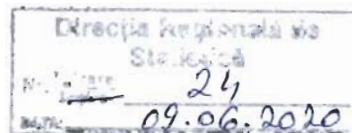 Direcția Regională de
Statistică
24
09.06.2020